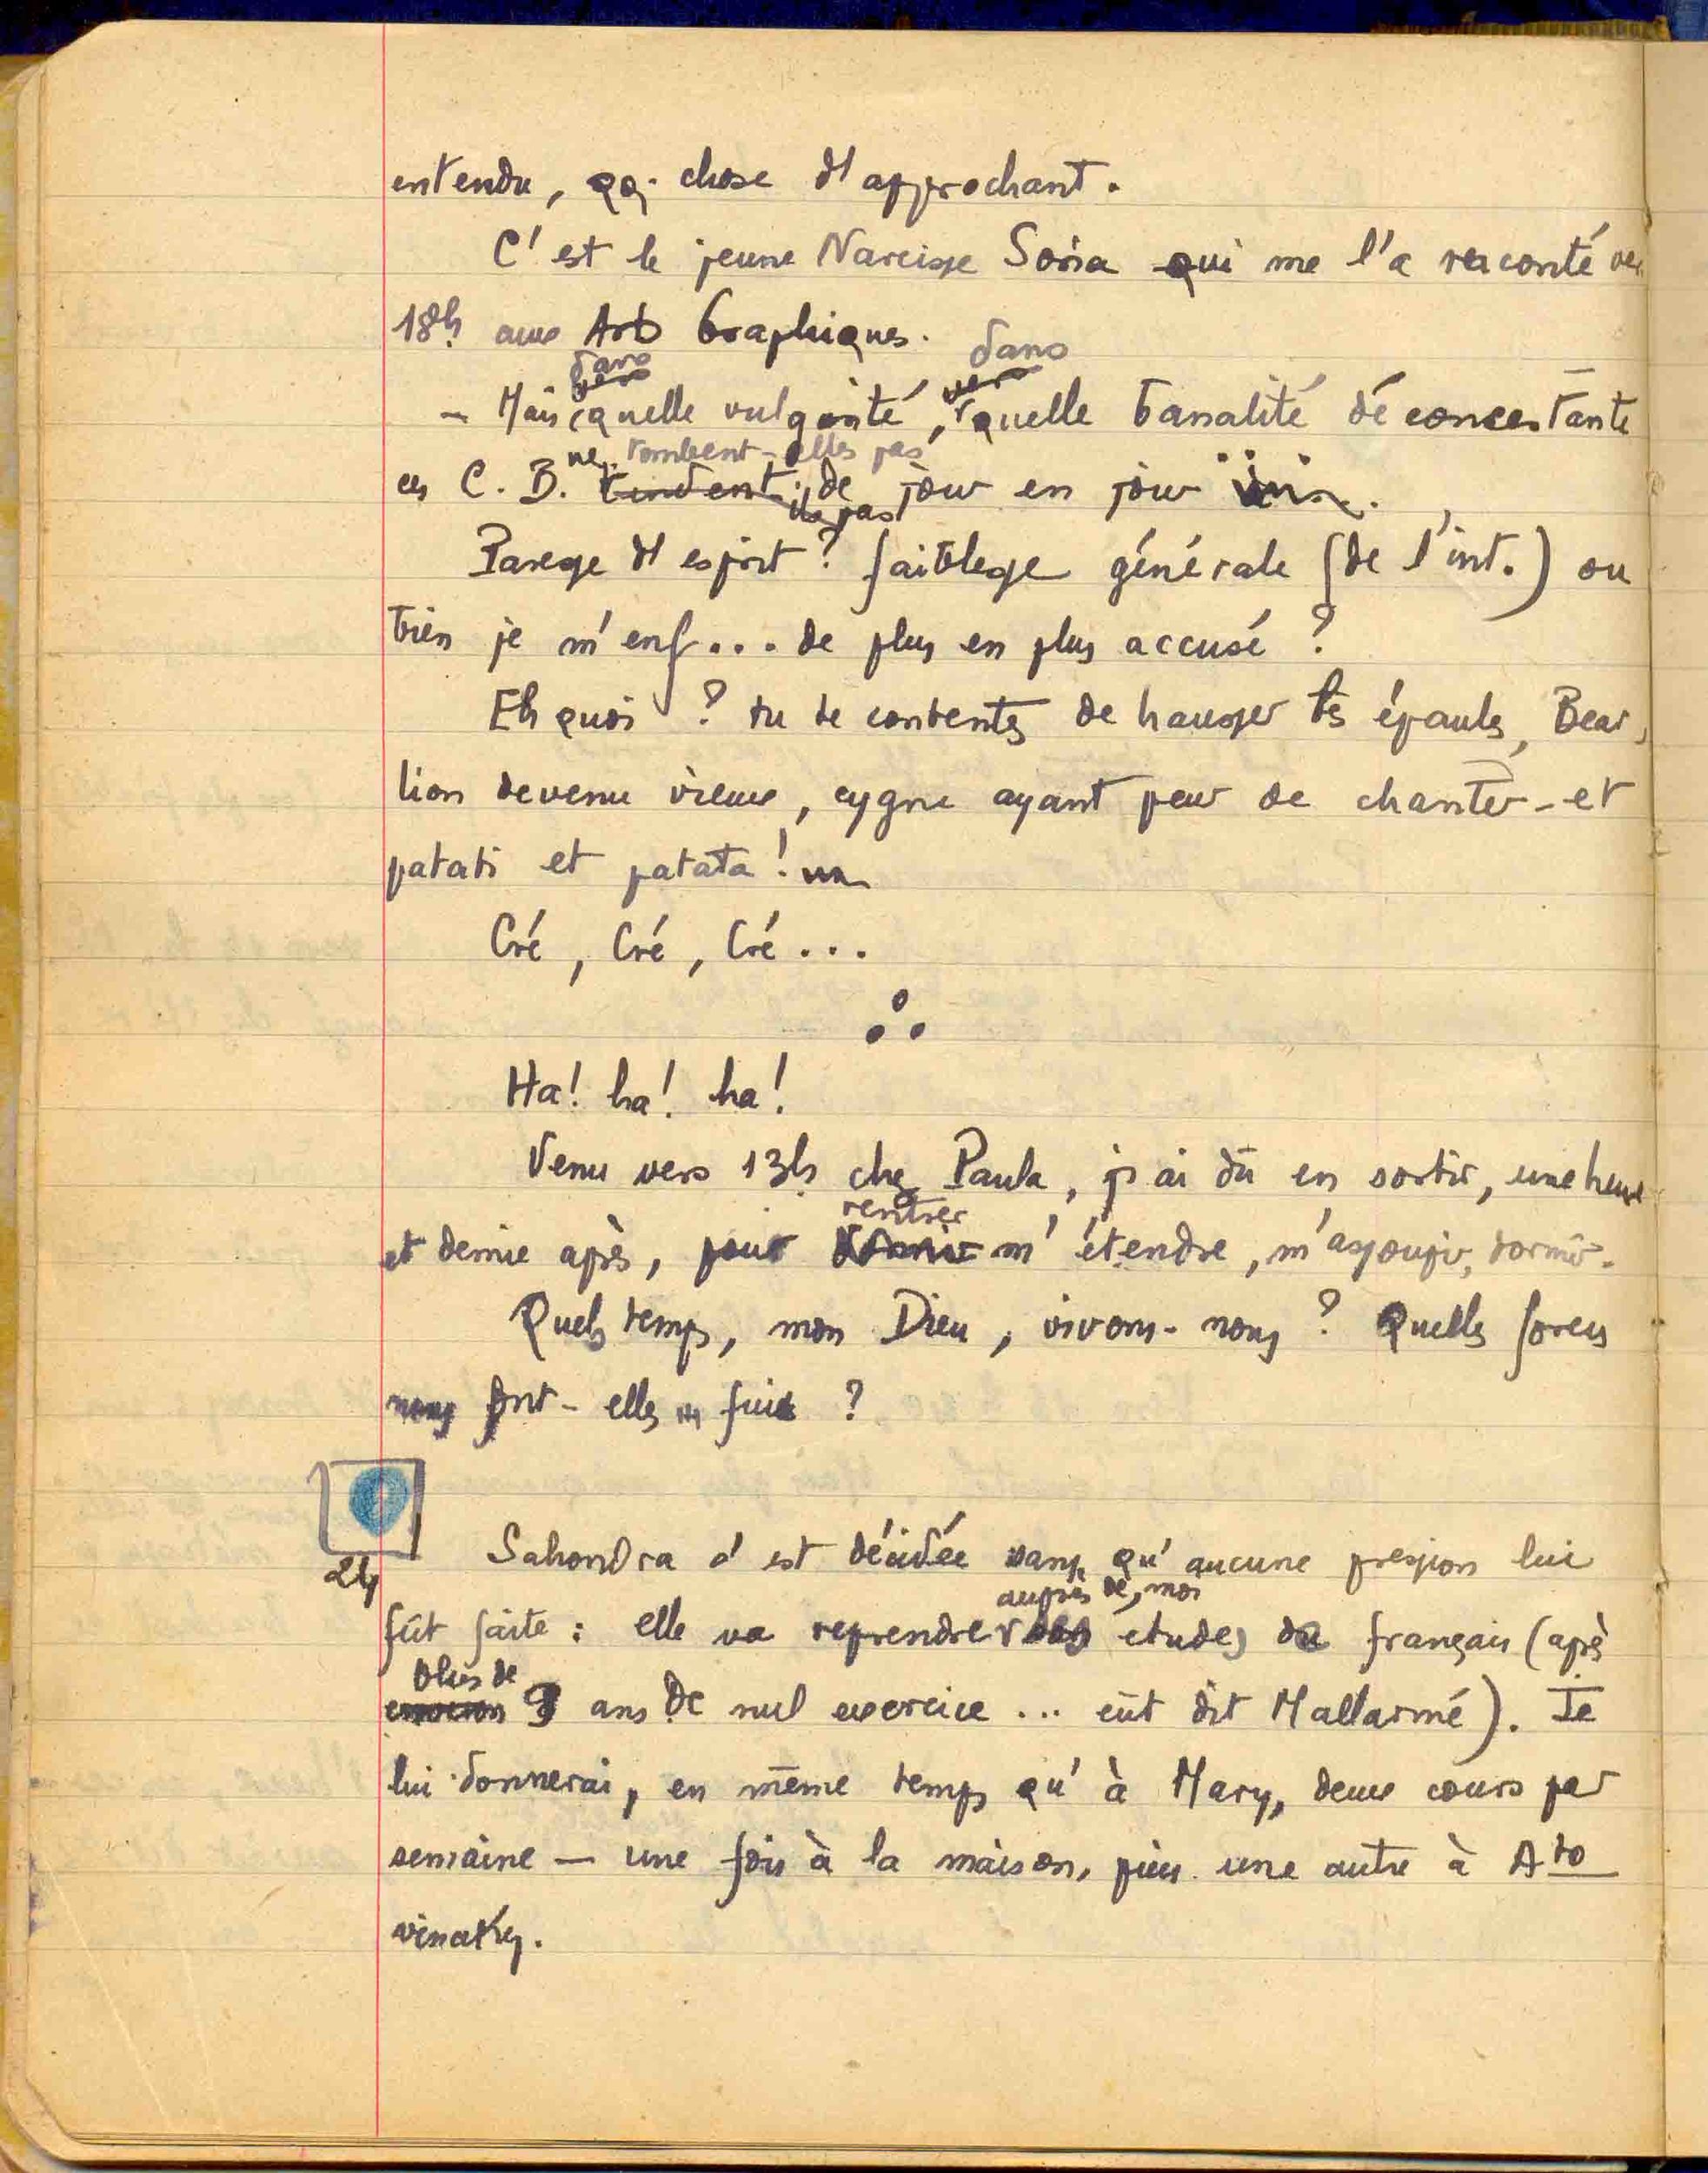 entendu, qq. chose d'approchant.
C'est le jeune Narcisse Soria qui me l'a raconté ver
18h aux Arts Graphiques.
dans dans
vers vers
– Mais quelle vulgarité, quelle banalité déconcertante
ne tombent-elles pas
ces C. B. tendent de jour en jour
ils pas
Paresse d'esprit? faiblesse générale (de l'int.) ou
bien je m'enf... de plus en plus accusé?
Eh quoi? tu te contentes de hausser les épaules, Bear,
lion devenu vieux, cygne ayant peur de chanter – et
patati et patata!
Cré, Cré, Cré...
Ha! ha! ha!
Venu vers 13h chez Paula, j'ai dû en sortir, une heure
rentrer
et demie après, pour m'étendre, m'assoupir, dormir.
Quels temps, mon Dieu, vivons-nous? Quelles forces
nous font-elles fuir?
24
Sahondra s'est décidée sans qu'aucune pression lui
auprès de moi
fût faite: elle va reprendre ses études de français (après
plus de
environ 9 ans de nul exercice ... eût dit Mallarmé). Je
lui donnerai, en même temps qu'à Mary, deux cours par
semaine – une fois à la maison, puis une autre à Ato
vinaky.